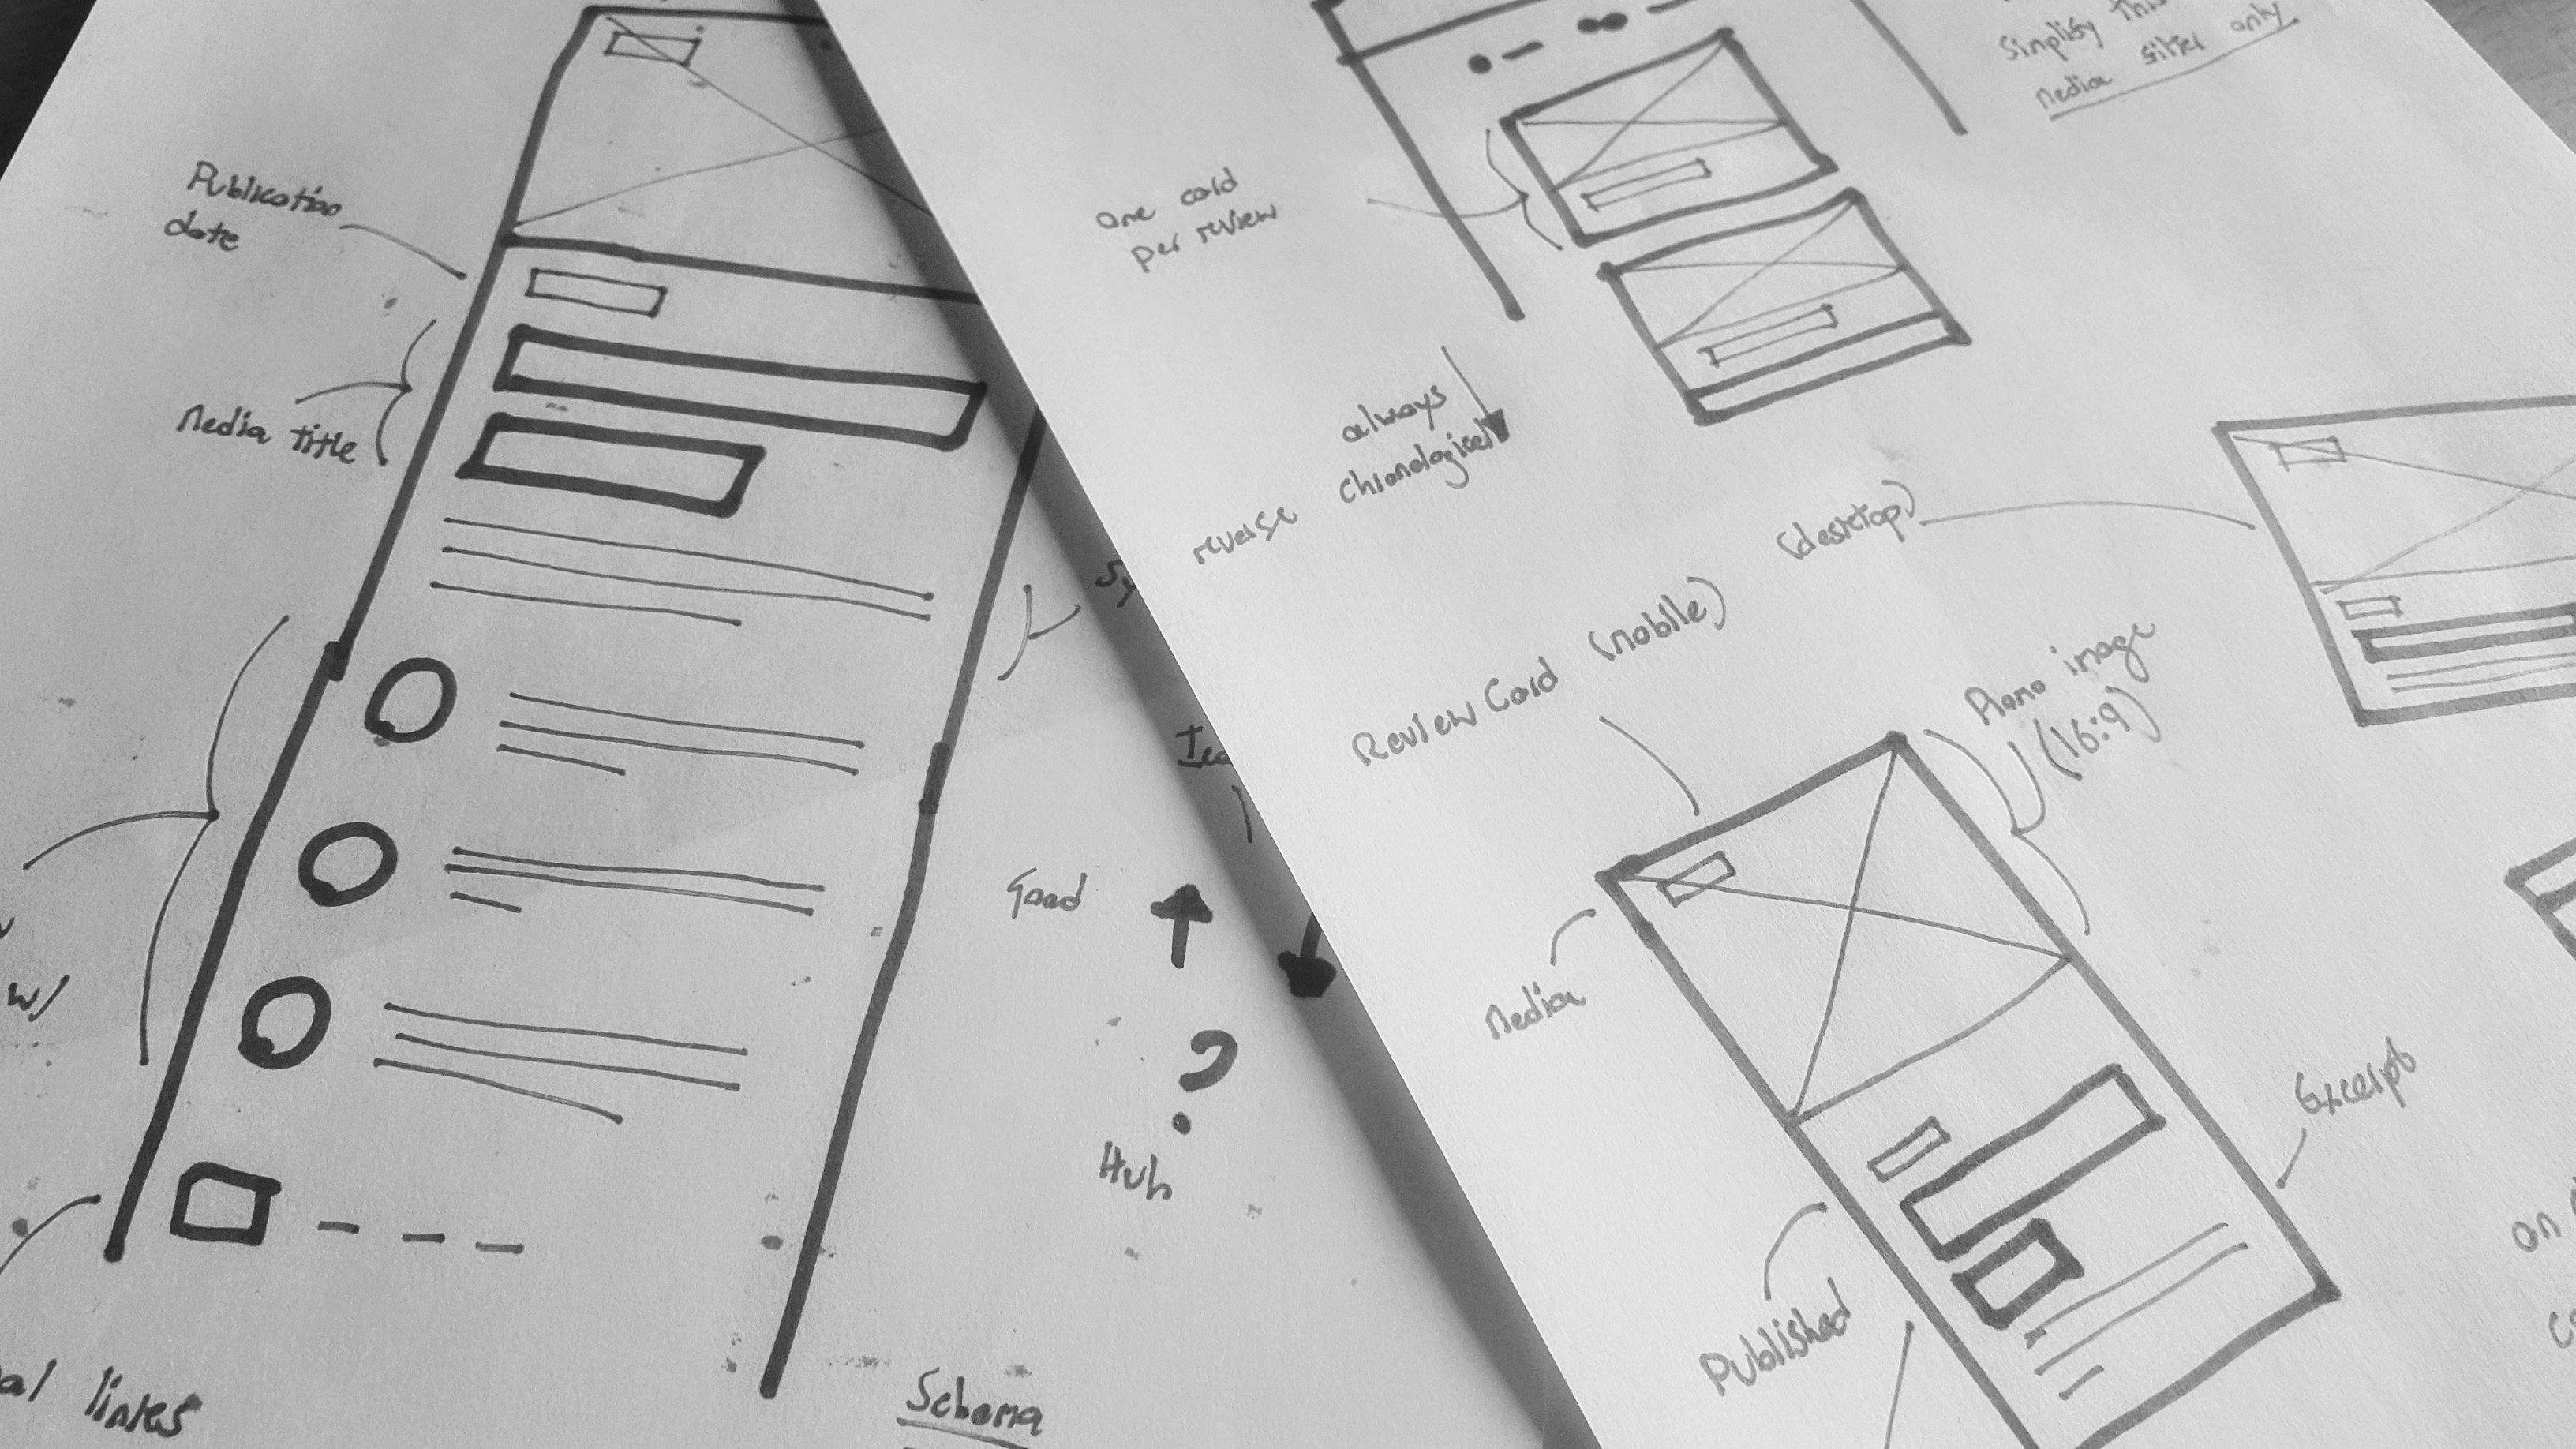 Publication
date
Media title
w/
al links
Good
Hub
Schema
Simplify this
media filter only
one card
per review
always
reverse chronological
(desktop)
Review Card (mobile)
Promo image
(16:9)
Media
Excerpt
Published
on